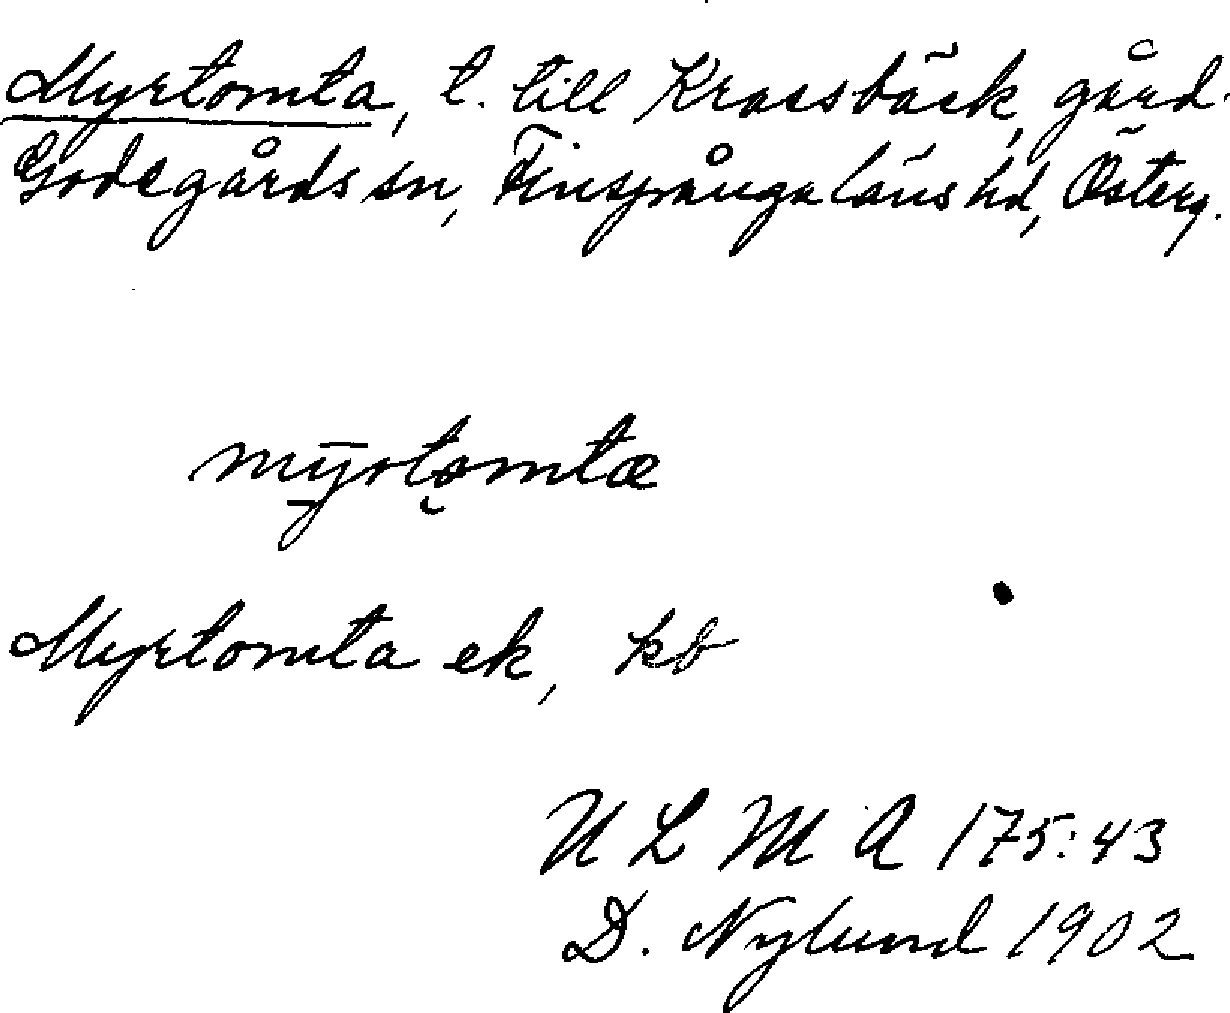 Myrtomta, t. till Krassbäck, gård.
Godegårds sn, Finspånga läns hd, Österg.
mȳrtomtæ
Myrtomta ek, kb
U L M A 175:43
D. Nylund 1902